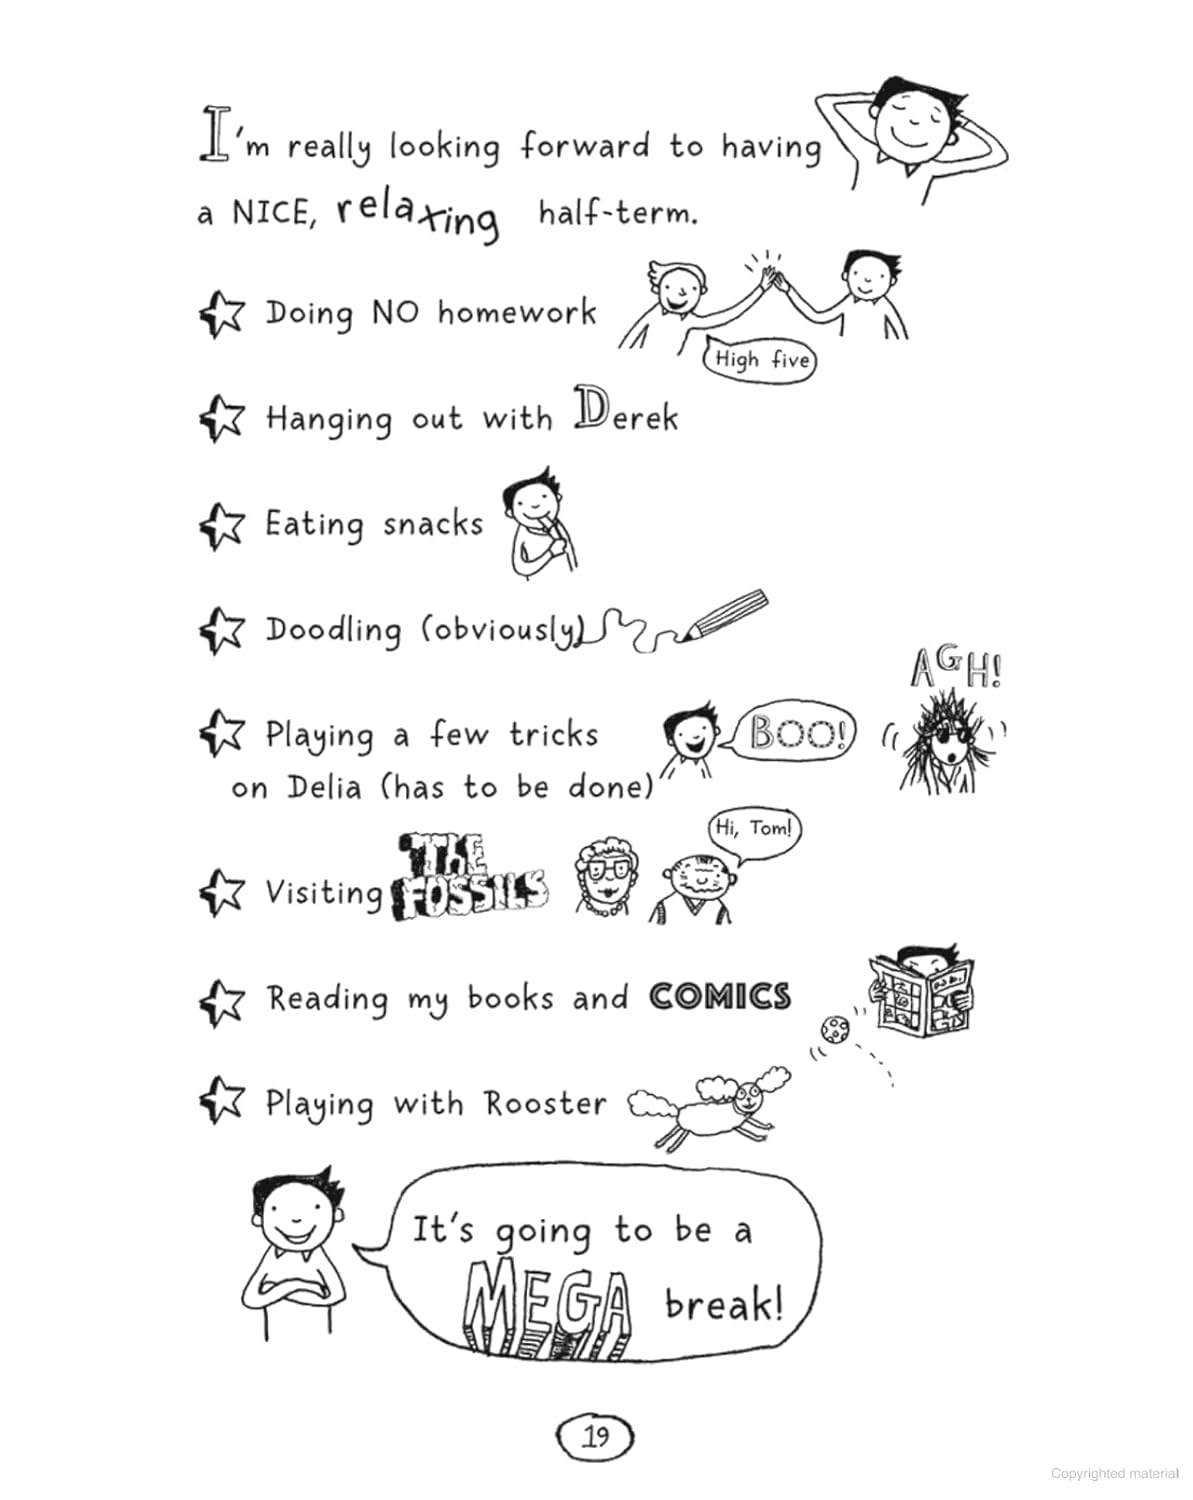 I'm really looking forward to having
a NICE, relaxing half-term.
Doing NO homework
High five
Hanging out with Derek
Eating snacks
Doodling (obviously)
AGH!
Playing a few tricks
BOO!
on Delia (has to be done)
Hi, Tom!
Visiting THE FOSSILS
Reading my books and COMICS
Playing with Rooster
It's going to be a
MEGA break!
19
Copyrighted material